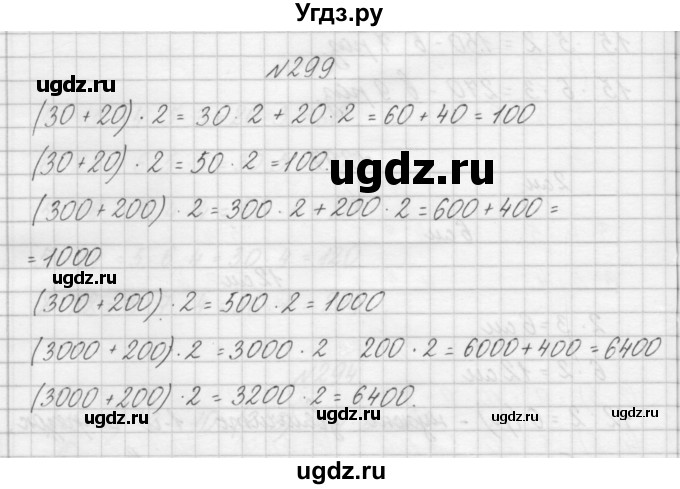 Угдз.ру
№299
ugdz.ru ugdz.ru
(30 + 20) · 2 = 30 · 2 + 20 · 2 = 60 + 40 = 100
(30 + 20) · 2 = 50 · 2 = 100.
ugdz.ru
(300 + 200) · 2 = 300 · 2 + 200 · 2 = 600 + 400 =
= 1000
ugdz.ru ugdz.ru
(300 + 200) · 2 = 500 · 2 = 1000
(3000 + 200) · 2 = 3000 · 2 200 · 2 = 6000 + 400 = 6400
(3000 + 200) · 2 = 3200 · 2 = 6400.
ugdz.ru ugdz.ru ugdz.ru ugdz.ru
ugdz.ru